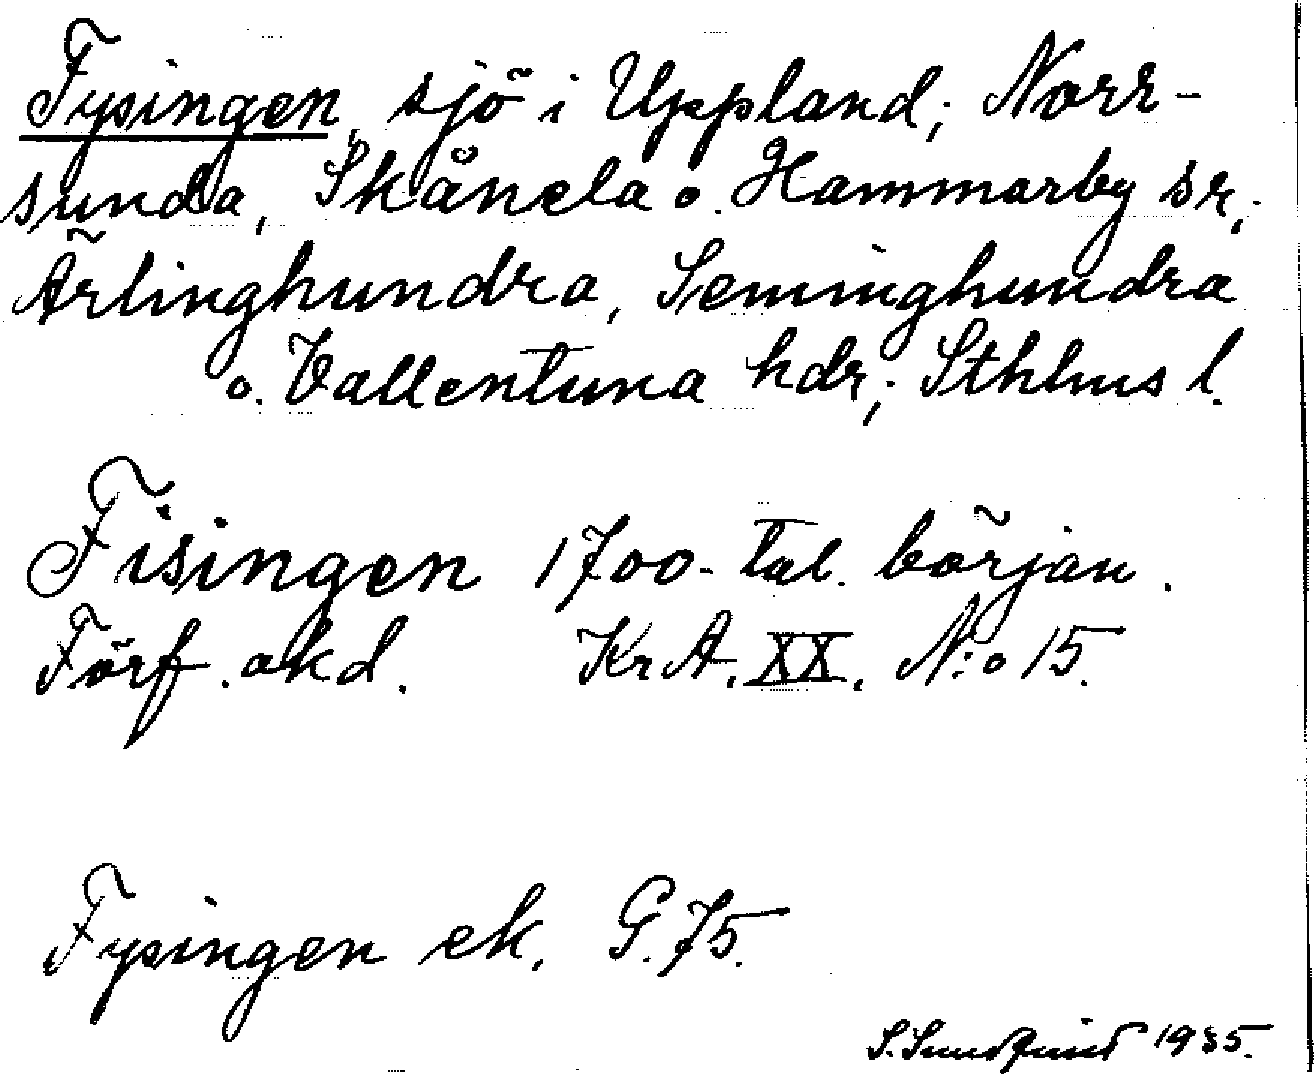 Fysingen, sjö i Uppland; Norr-
sunda, Skånela o. Hammarby sr,
Ärlinghundra, Seminghundra
o. Vallentuna hdr; Sthlms l.
Fisingen 1700-tal. början.
Förf. okd. KrA. XX. N:o 15.
Fysingen ek. G. 75.
S. Sundqvist 1935.